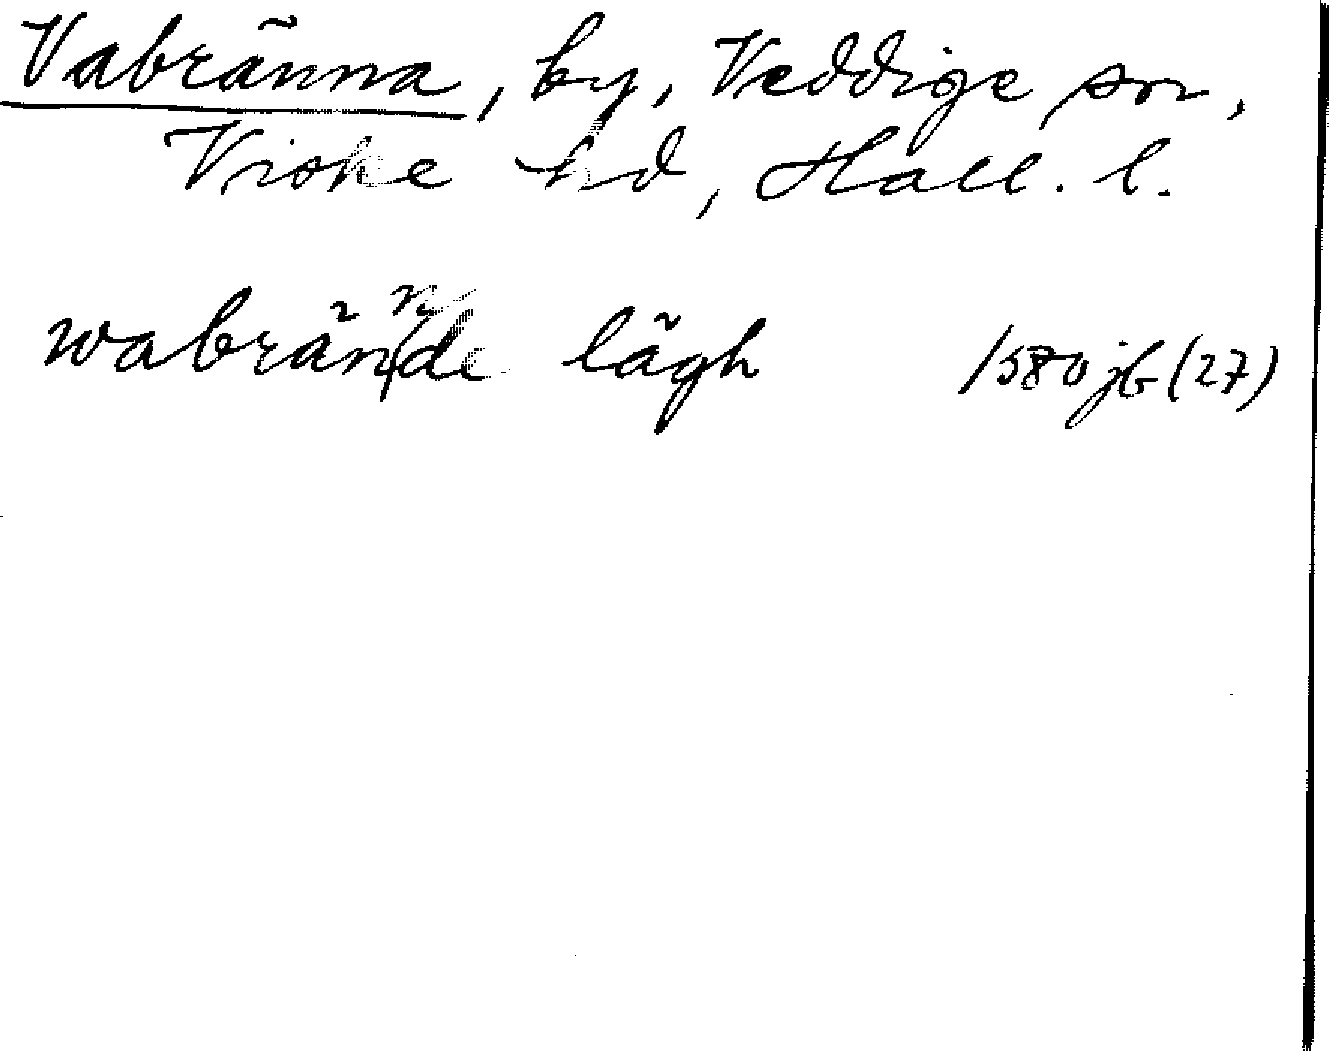 Vabränna, by, Veddige sn,
Viske hd, Hall. l.
wabrännde lägh 1580 jb (27)